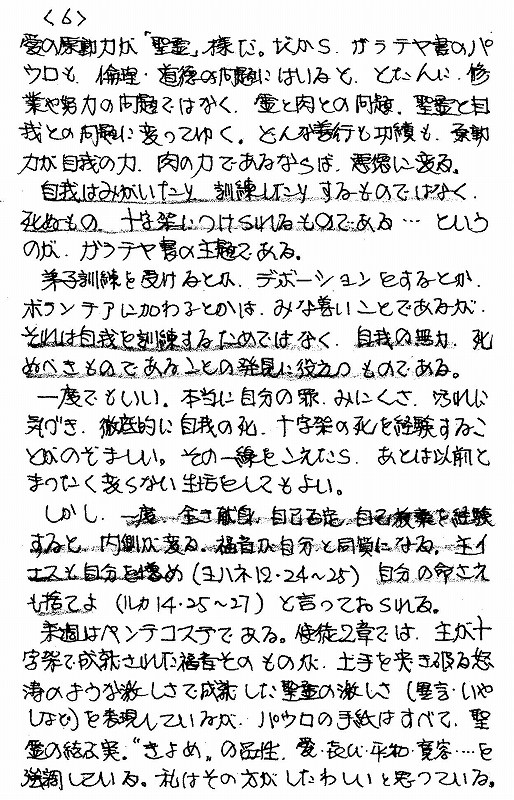 <6>
愛の原動力が「聖霊」様だ。だから、ガラテヤ書のパ
ウロも、倫理・道徳の問題にはいると、とたんに、修
業や努力の問題ではなく、霊と肉との問題、聖霊と自
我との問題に変ってゆく。どんな善行も功績も、原動
力が自我の力、肉の力であるならば、悪臭に変る。
自我はみがいたり、訓練したりするものではなく、
死ぬもの、十字架につけられるものである…という
のが、ガラテヤ書の主題である。
弟子訓練を受けるとか、デボーションをするとか、
ボランテアに加わるとかは、みな善いことであるが、
それは自我を訓練するためではなく、自我の無力、死
ぬべきものであることの発見に役立つものである。
一度でもいい。本当に自分の罪、みにくさ、汚れに
気づき、徹底的に自我の死、十字架の死を経験するこ
とがのぞましい。その一線をこえたら、あとは以前と
まったく変らない生活をしてもよい。
しかし、一度、全き献身、自己否定、自己放棄を経験
すると、内側が変る。福音が自分と同質になる。主イ
エスも自分を憎め(ヨハネ12・24~25)自分の命さえ
も捨てよ(ルカ14・25~27)と言っておられる。
来週はペンテコステである。使徒2章では、主が十
字架で成就された福音そのものが、土手を突き破る怒
涛のような激しさで成就した聖霊の激しさ(異言・いや
しなど)を表現しているが、パウロの手紙はすべて、聖
霊の結ぶ実、"きよめ"の品性、愛・喜び・平和・寛容……を
強調している。私はその方がしたわしいと思っている。